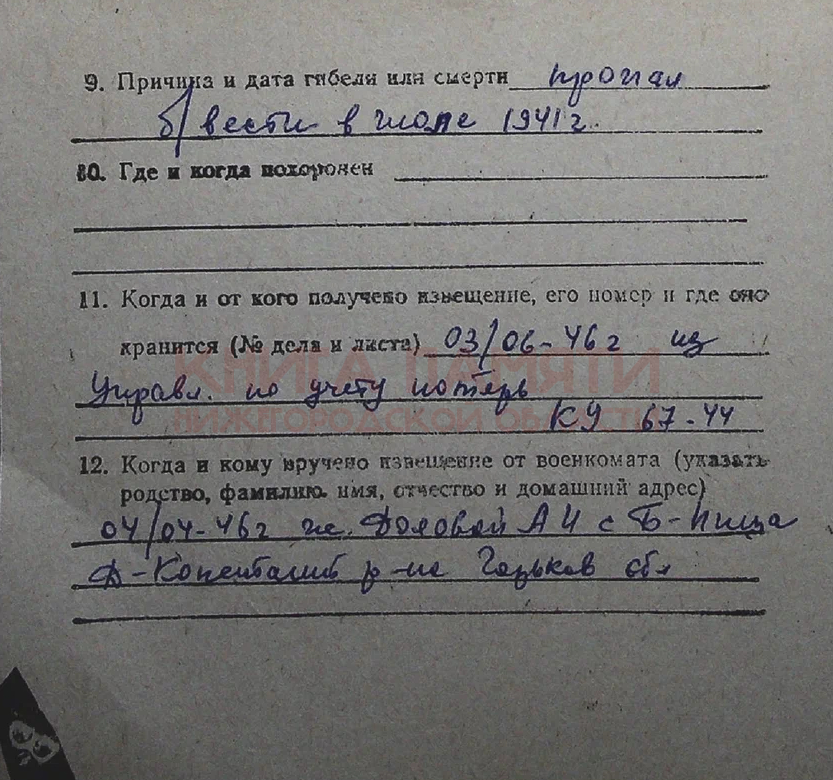 9. Причина и дата гибели или смерти пропал
б/вести в июле 1941 г.
10. Где и когда похоронен
11. Когда и от кого получено извещение, его номер и где оно
хранится (№ дела и листа) 03/06-46 г из
КНИГА ПАМЯТИ
Управл. по учету потерь
НИЖЕГОРОДСКОЙ ОБЛАСТИ
КУ 67-44
12. Когда и кому вручено извещение от военкомата (указать
родство, фамилию, имя, отчество и домашний адрес)
04/04-46 г же. А И с Б-Пица
Д-Константий р-на Горьков обл